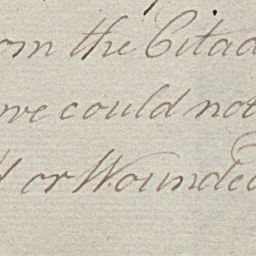 om the Citad
we could not
or Wounded